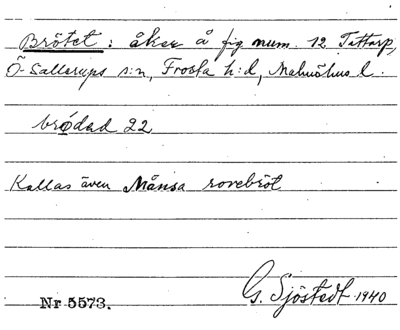 Brötet: åker å fig num. 12 Tattarp,
Ö. Sallerups s:n, Frosta h:d, Malmöhus l.
brødad 22
Kallas även Månsa rovebröt
G. Sjöstedt 1940
Nr 5573.